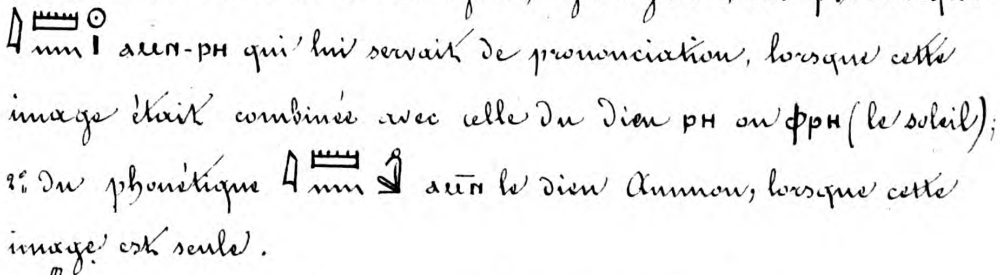 𓇋𓏠𓈖𓇳𓏤 ⲁⲙⲛ-ⲣⲏ qui lui servait de prononciation, lorsque cette
image était combinée avec celle du dieu ⲣⲏ ou ⲫⲣⲏ (le soleil);
2º du phonétique 𓇋𓏠𓈖𓀭 ⲁⲙ̅ⲛ le dieu Ammon, lorsque cette
image est seule.